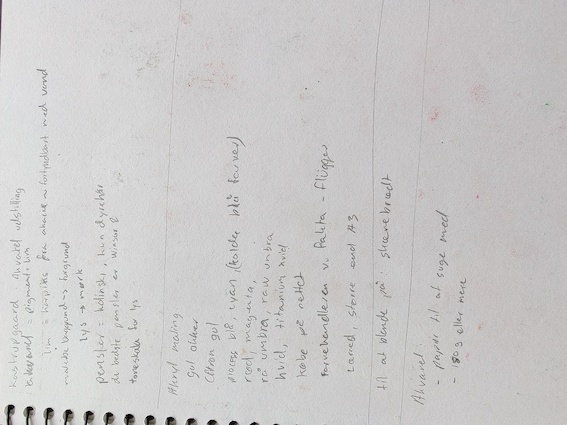 Kastrupgaard - Akvarel udstilling
pigment + lim
lim = fra akacie → fortyndbart med vand
baggrund → forgrund
lys → mørk
pensler = kolinski, kun dyrehår
de bedste pensler er winsor &
toneskala fra lys
Akryl maling
gul okker
Citron gul
process blå, cyan, (kolde blå farver)
rød, magenta,
rå umbra, raw umbra
hvid, titanium hvid
købe på nettet
Farvehandleren v. Fakta - Flügger
større end A3
til at blande på: skærebrædt
Akvarel:
- papir til at suge med
- 180 g eller mere